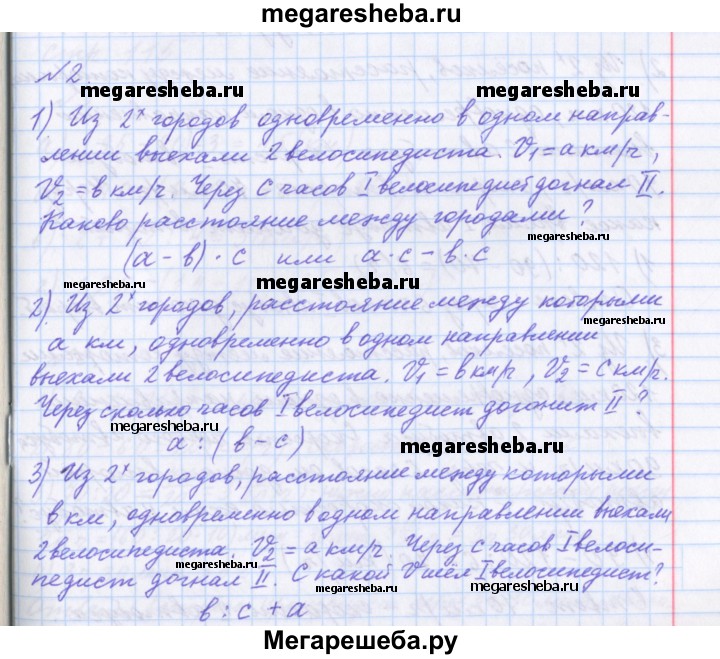 megaresheba.ru
№2.
megaresheba.ru
megaresheba.ru
1) Из 2х городов одновременно в одном направ-
лении выехали 2 велосипедиста. V1 = a км/ч,
V2 = в км/ч. Через c часов I велосипедист догнал II.
Каково расстояние между городами?
(a - в) · c или a · c - в · c
megaresheba.ru
megaresheba.ru
2) Из 2х городов, расстояние между которыми
a км, одновременно в одном направлении
выехали 2 велосипедиста. V1 = в км/ч, V2 = c км/ч.
Через сколько часов I велосипедист догонит II?
megaresheba.ru
a : (в - c)
megaresheba.ru
3) Из 2х городов, расстояние между которыми
в км, одновременно в одном направлении выехали
2 велосипедиста. V2 = a км/ч. Через c часов I велоси-
педист догнал II. С какой V шёл I велосипедист?
в : c + a
megaresheba.ru
megaresheba.ru
Мегарешеба.ру